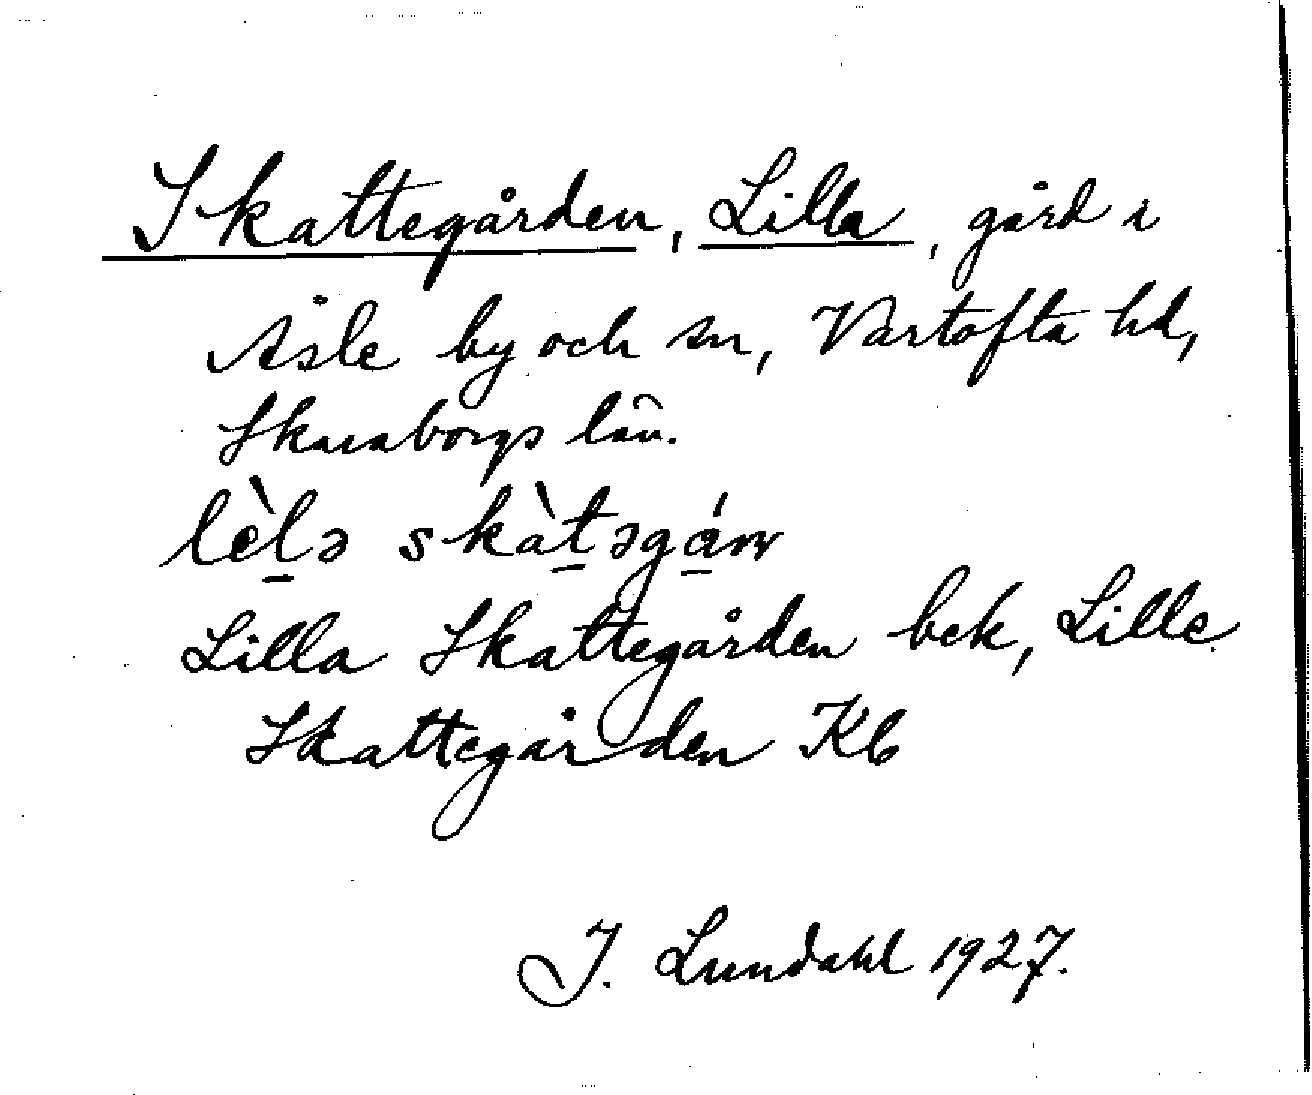 Skattegården, Lilla, gård i
Åsle by och sn, Vartofta hd,
Skaraborgs län.
lèlə skàtəgán
Lilla Skattegården bek, Lille
Skattegården Kb
I. Lundahl 1927.